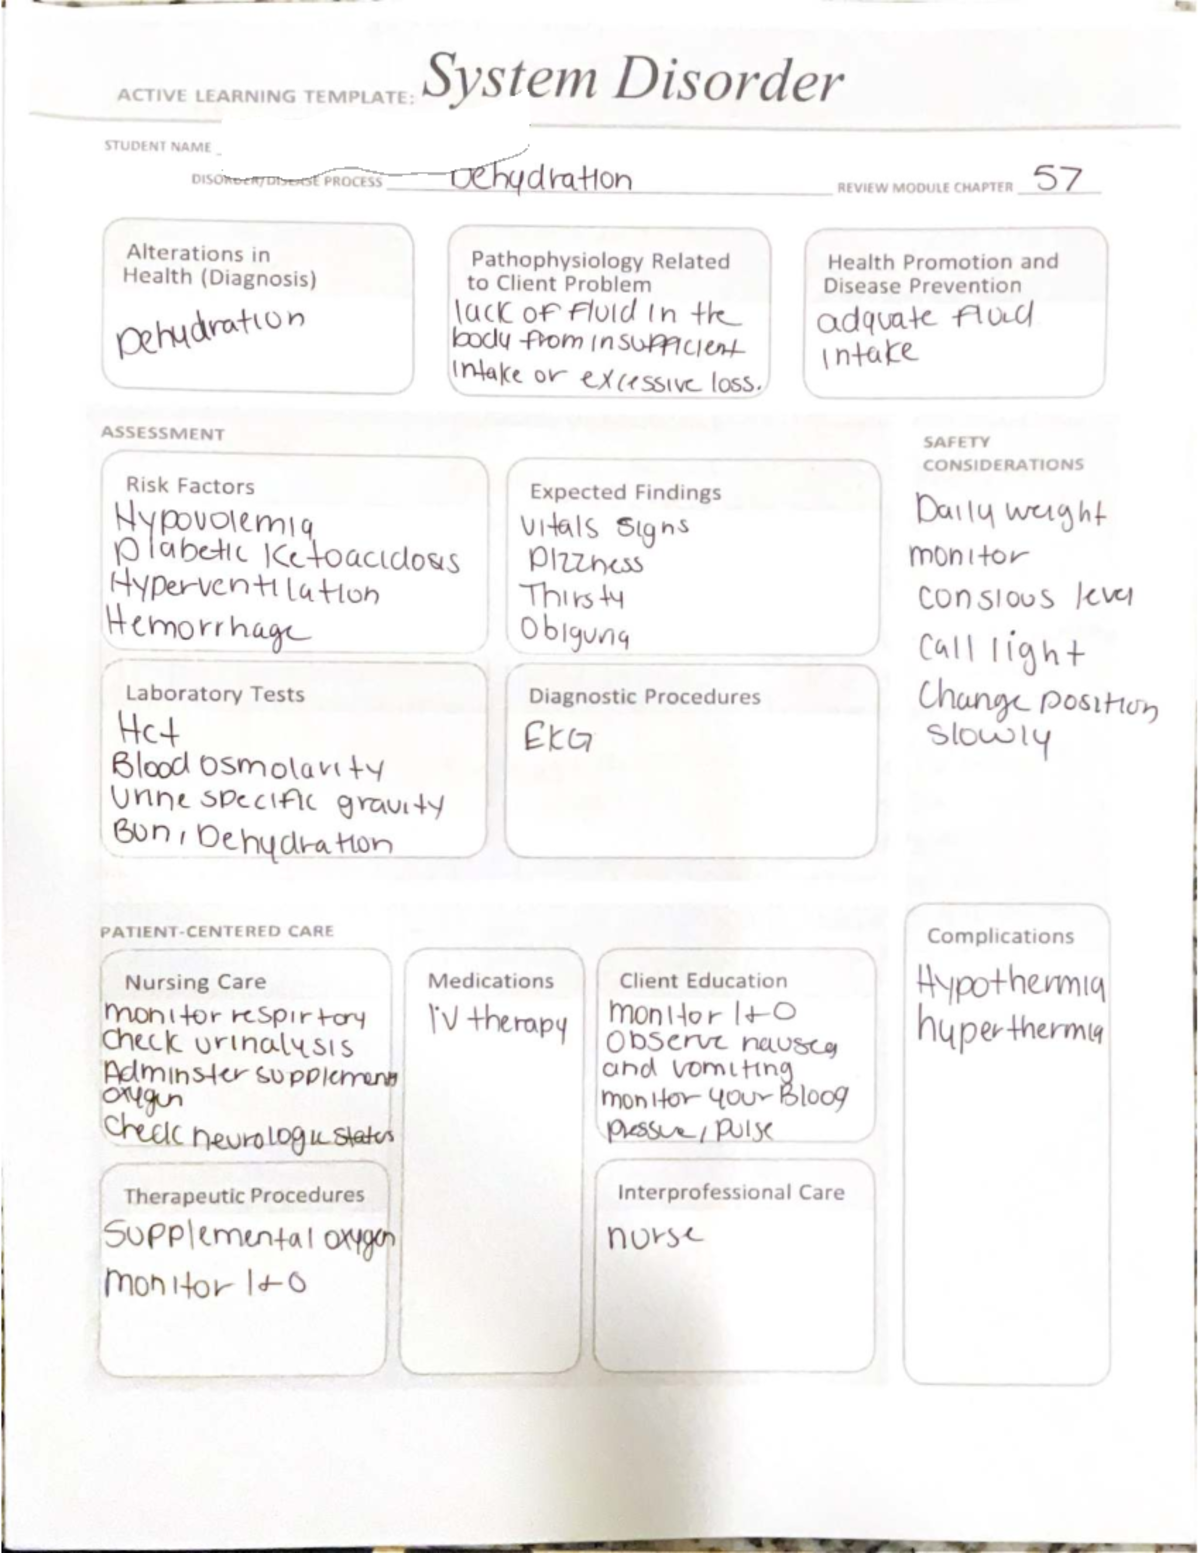 ACTIVE LEARNING TEMPLATE: System Disorder
STUDENT NAME
DISORDER/DISEASE PROCESS Dehydration REVIEW MODULE CHAPTER 57
Alterations in
Health (Diagnosis)
Dehydration
Pathophysiology Related
to Client Problem
lack of fluid in the
body from insufficient
intake or excessive loss.
Health Promotion and
Disease Prevention
adquate fluid
intake
ASSESSMENT
Risk Factors
Hypovolemia
Diabetic Ketoacidosis
Hyperventilation
Hemorrhage
Expected Findings
Vitals signs
Dizzness
Thirsty
Obiguria
Laboratory Tests
Hct
Blood osmolarity
Urine specific gravity
Bun, Dehydration
Diagnostic Procedures
EKG
SAFETY
CONSIDERATIONS
Daily weight
monitor
consious level
call light
change position
slowly
PATIENT-CENTERED CARE
Nursing Care
monitor respirtory
check urinalysis
Adminster supplement
oxygen
check neurologic status
Medications
IV therapy
Client Education
monitor I+O
Observe nausea
and vomiting
monitor your Blood
pressure, pulse
Therapeutic Procedures
Supplemental oxygen
monitor I+O
Interprofessional Care
nurse
Complications
Hypothermia
hyperthermia